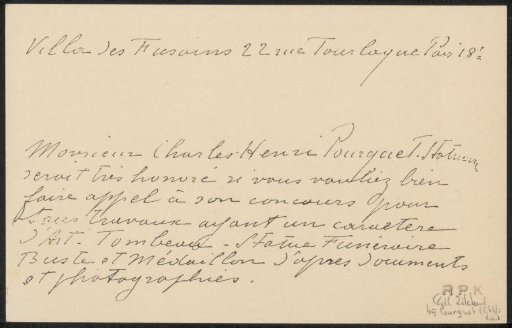 Villa des Fusains 22 rue Tourlaque Paris 18e
Monsieur Charles-Henri Pourquet. Statuaire
serait très honoré si vous vouliez bien
faire appel à son concours pour
tous travaux ayant un caractère
d'Art. Tombeau - Statue Funéraire
Buste et Médaillon d'après documents
et photographies.
RPK